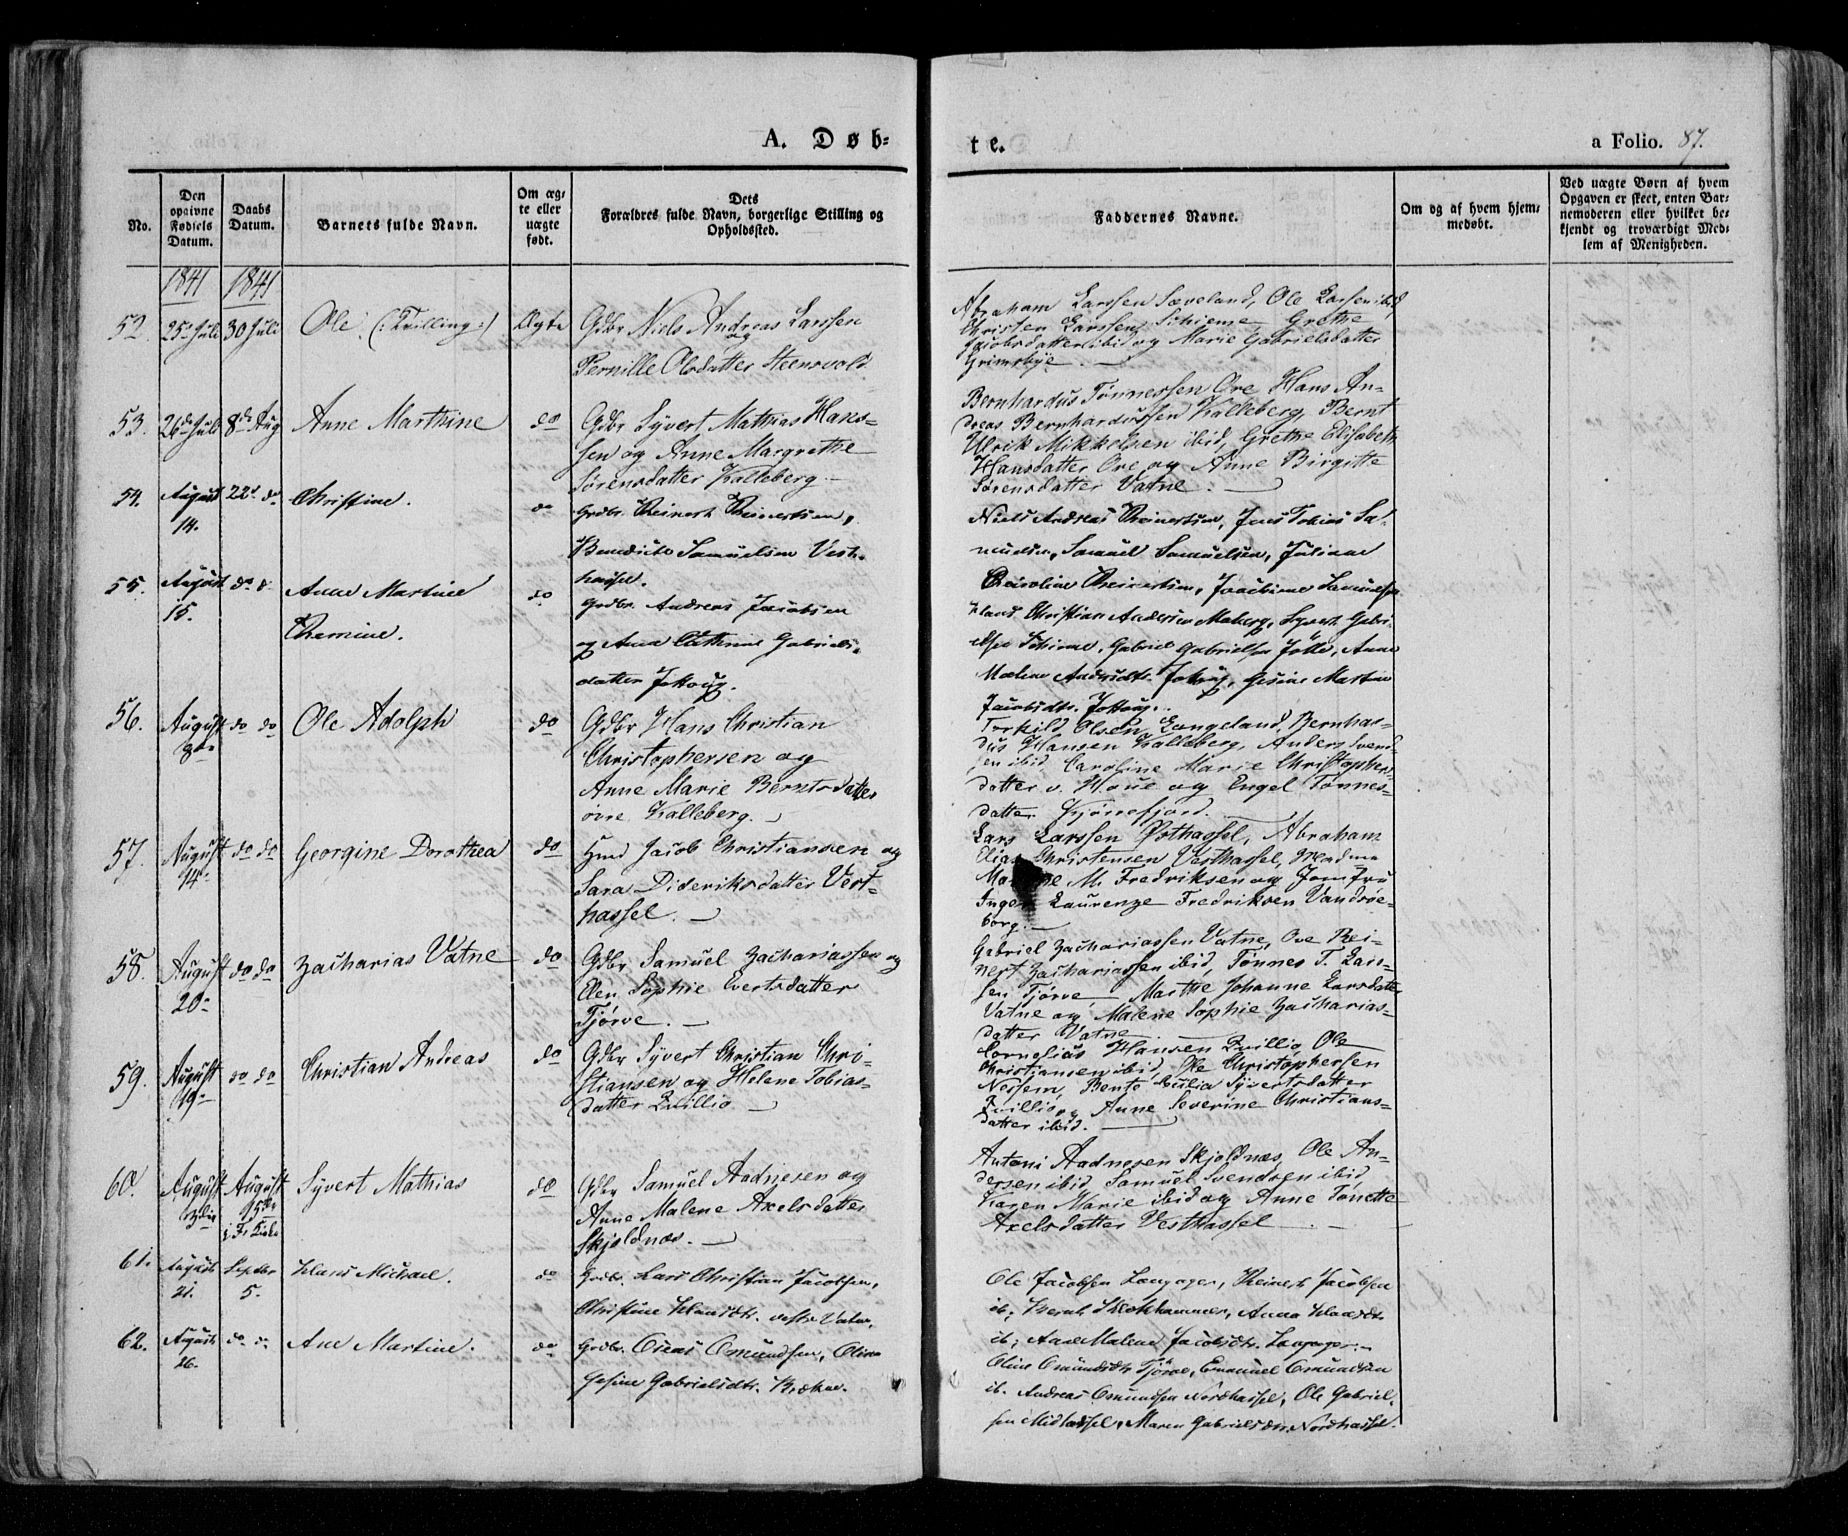 A. Døb-
te.
a Folio. 87.
No.
Den opgivne Fødsels Datum.
Daabs Datum.
Barnets fulde Navn.
Om ægte eller uægte født.
Dets Forældres fulde Navn, borgerlige Stilling og Opholdssted.
Faddernes Navne.
Om og af hvem hjemmedøbt.
Ved uægte Børn af hvem
Opgaven er skeet, enten Bar-
nemoderen eller hvilket be-
kjendt og troværdigt Med-
lem af Menigheden.
1841 1841
52. 25de Juli 30 Juli Ole (: Tvilling :) Ægte
Gdbr Niels Andreas Larssen
og
Pernille Olsdatter Steensvold
Abraham Larssen Sæveland, Ole Larsen ibid
Christen Larssen Schieme Grethe
Jacobsdatter ibid og Marie Gabrielsdatter
Grimsbye.
53. 26de Juli 8de Aug Anne Marthine do
Gdbr Syvert Mathias Hans-
sen og Anne Margrethe
Sørensdatter Kalleberg
Bernhardus Tønnessen Ore Hans An-
dreas Bernhardussen Kalleberg Bernt
Ulrik Mikkelsen ibid, Grethe Elisabeth
Hansdatter Ore og Anne Birgitte
Sørensdatter Vatne.
54. August 14. 22d do Christine. do
Grdbr. Reinert Reinertsen,
Benedicte Samuelsen Vest-
hassel.
Niels Andreas Reinertsen, Jens Tobias Sa-
muelsen, Samuel Samuelsen, Juliane
Caroline Reinertsen, Joachime Samuelsen
55. August 15. do d. Anne Martine
Remine. do
Grdbr. Andreas Jacobsen
og Ana Cathrine Gabriels-
datter Jølloug.
Hans Christian Andersen Maberg, Syvert Gabri-
elsen Schieme, Gabriel Gabrielsen Jølle, Anne
Malene Andersdtr. Jølloug, Gesine Martine
Jacobsdtr. Jølloug.
56. August 8de do do Ole Adolph do
Gdbr Hans Christian
Christophersen og
Anne Marie Berntsdatter
øvre Kalleberg.
Torkild Olsen Langeland, Bernhar-
dus Hansen Kalleberg, Anders Svend-
sen ibid Caroline Marie Christophers-
datter v. Houe og Engel Tønnes-
datter Kjørrefjord.
57. August 14de do do Georgine Dorothea do
Hmd Jacob Christiansen og
Sara Dideriksdatter Vest-
hassel.
Lars Larssen Østhassel, Abraham
Elias Christensen Vesthassel, Madme
M. Fredriksen og Jomfru
Inger Laurenze Fredriksen Vandrøe-
borg.
58. August 20de do do Zacharias Vatne do
Gdbr Samuel Zachariassen og
Elen Sophie Evertsdatter
Tjørve.
Gabriel Zachariassen Vatne, Ove Rei-
nert Zachariassen ibid, Tønnes T. Lars-
sen Tjørve Marthe Johanne Larsdatter
Vatne og Malene Sophie Zacharias-
datter Vatne
59. August 19de do do Christian Andreas do
Gdbr Syvert Christian Chri-
stiansen og Helene Tobias-
datter Qvillio
Cornelius Hansen Qvillio Ole
Christiansen ibid, Ole Christophersen
Nessem, Bente Julia Syvertsdatter
Qvillio og Anne Severine Christians-
datter ibid.
60. August 3die August 15de i Fr. Kirke Syvert Mathias do
Gdbr Samuel Aadnesen og
Anne Malene Axelsdatter
Skjoldnæs.
Antoni Aadnesen Skjoldnæs, Ole An-
dersen ibid Samuel Svendsen ibid
Karen Marie ibid og Anne Tonette
Axelsdatter Vesthassel
61. August 21. Septbr 5. Hans Michael. do
Grdbr. Lars Christian Jacobsen,
Christine Hansdtr. vestre Vatne.
Ole Jacobsen Langager, Reinert Jacobsen
ib, Bernt Klokhammer, Anna Hansdtr
ib, Ane Malene Jacobsdtr. Langager.
62. August 26. do. do. Ane Martine. do
Grdbr. Oseas Omundsen, Oline
Gesine Gabrielsdtr. Brekne.
Oline Omundsdtr Tjørve, Emanuel Omundsen
ib. Andreas Omundsen Nordhassel, Ole Gabriel-
sen Midhassel, Maren Gabrielsdtr Nordhassel